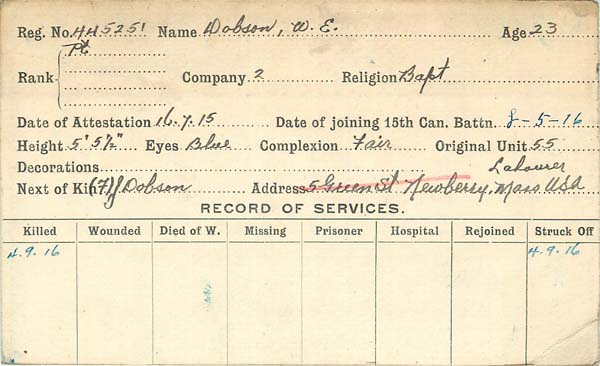 Reg. No. 445251 Name Dobson, W. E. Age 23
Pt
Rank Company 2 Religion Bapt
Date of Attestation 16.7.15 Date of joining 15th Can. Battn. 8-5-16
Height 5' 5½" Eyes Blue Complexion Fair Original Unit 55
Decorations Labourer
Next of Kin (F) J Dobson Address 5 Green St Newberry, Mass USA
RECORD OF SERVICES.
Killed Wounded Died of W. Missing Prisoner Hospital Rejoined Struck Off
4.9.16 4.9.16